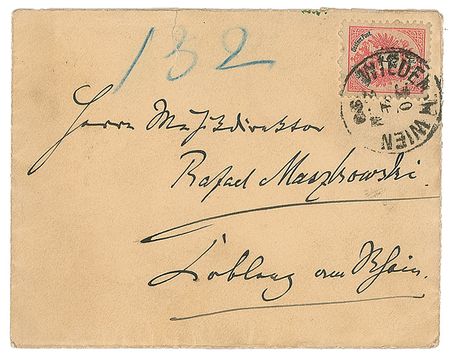 132
WIEDEN WIEN
Herrn Musikdirektor
Rafael Maszkowski.
Coblenz am Rhein.